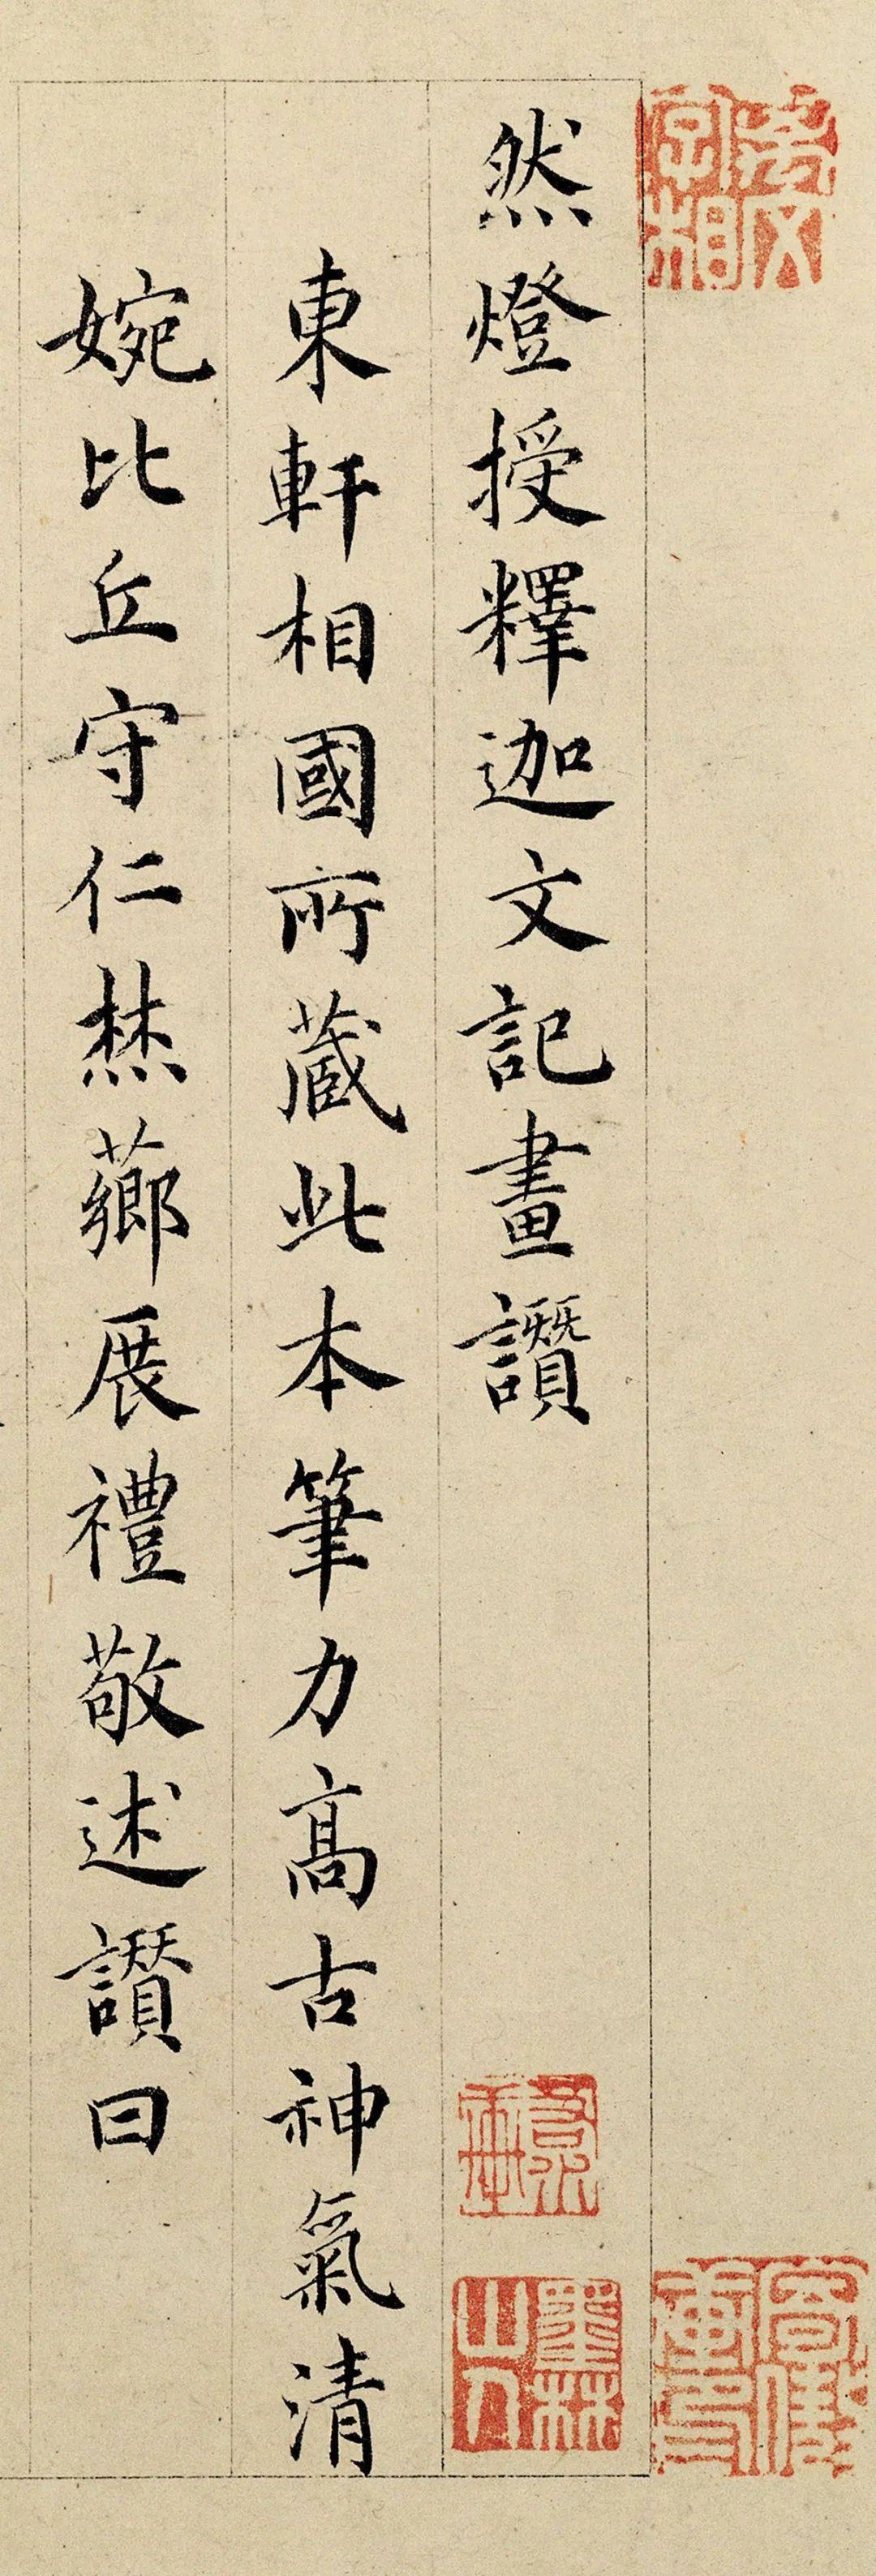 然燈授釋迦文記畫讚
東軒相國所蔵此本筆力高古神氣清
婉比丘守仁焚薌展禮敬述讚曰